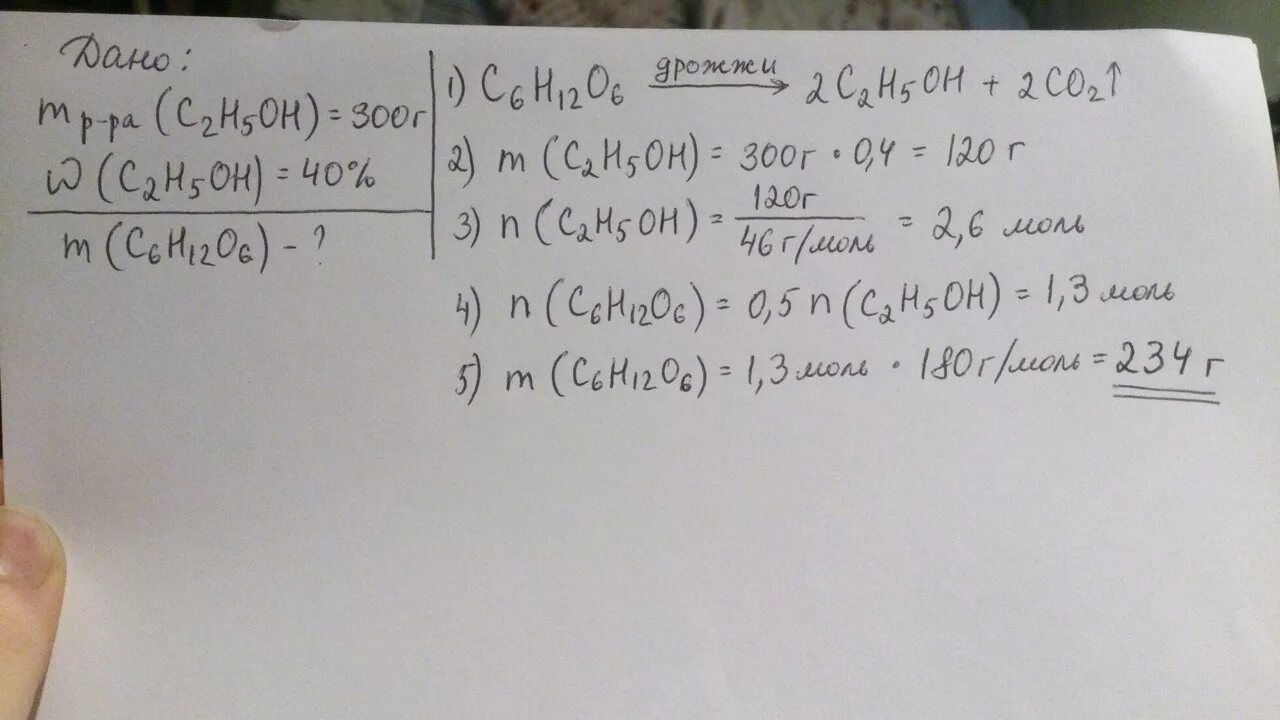 Дано:
m р-ра (C₂H₅OH) = 300г
ω (C₂H₅OH) = 40%
m (C₆H₁₂O₆) - ?
1) C₆H₁₂O₆ дрожжи → 2C₂H₅OH + 2CO₂↑
2) m (C₂H₅OH) = 300г · 0,4 = 120 г
3) n (C₂H₅OH) = 120г / 46 г/моль = 2,6 моль
4) n (C₆H₁₂O₆) = 0,5 n (C₂H₅OH) = 1,3 моль
5) m (C₆H₁₂O₆) = 1,3 моль · 180 г/моль = 234 г